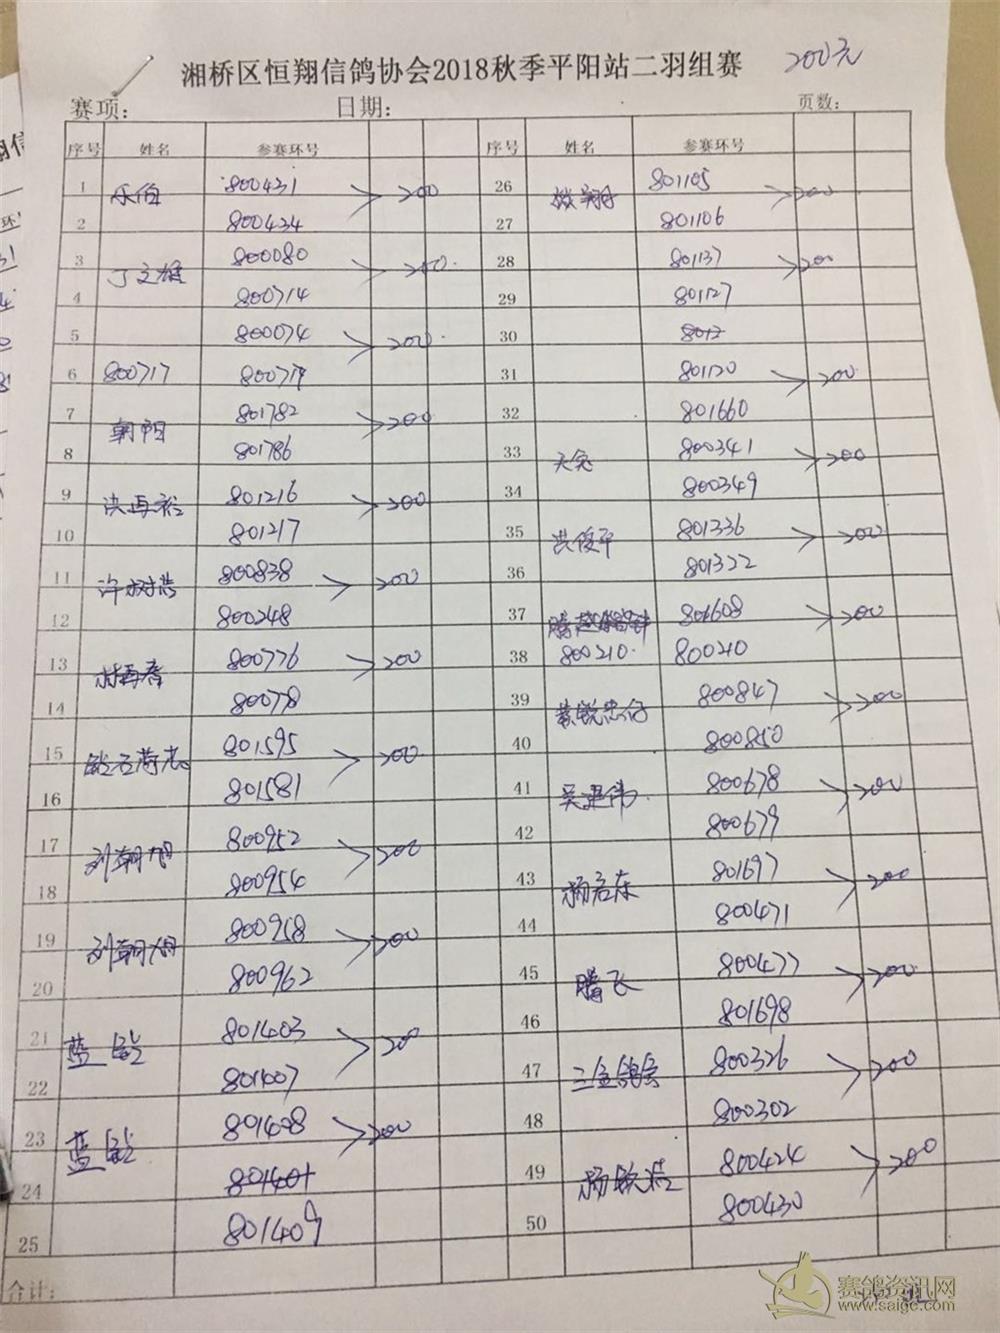 湘桥区恒翔信鸽协会2018秋季平阳站二羽组赛 200元
赛项: 日期: 页数:
序号 姓名 参赛环号 序号 姓名 参赛环号
1 乐伯 800431 >200
2 800434
3 丁文雄 800080 >200
4 800714
5 800074 >200
6 800717
7 朝阳 801782 >200
8 801786
9 洪再裕 801216 >200
10 801217
11 800838 >200
12 800248
13 林再春 800776 >200
14 800778
15 801595 >200
16 801581
17 刘朝旭 800952 >200
18 800954
19 刘朝旭 800958 >200
20 800962
21 蓝 801403 >200
22 801407
23 蓝 801408 >200
24
25 801409
合计:
26 翔 801105 >200
27 801106
28 801137 >200
29 801127
30
31 801120 >200
32 801660
33 天兔 800341 >200
34 800349
35 洪俊平 801336 >200
36 801322
37 腾越 801608 >200
38 800210 800210
39 黄锐忠仔 800847 >200
40 800850
41 吴建伟 800678 >200
42 800679
43 杨启东 801697 >200
44 800471
45 腾飞 800477 >200
46 801698
47 三金鸽舍 800326 >200
48 800302
49 杨 800424 >200
50 800430
赛鸽资讯网
www.saige.com